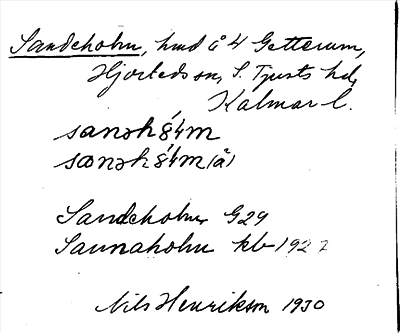 Sandeholm, hmd å 4 Getterum,
Hjorteds sn, S. Tjusts hd,
Kalmar l.
sanəh
sanəh
Sandeholm G29
Sannaholm kb 1927
Nils Henrikson 1930